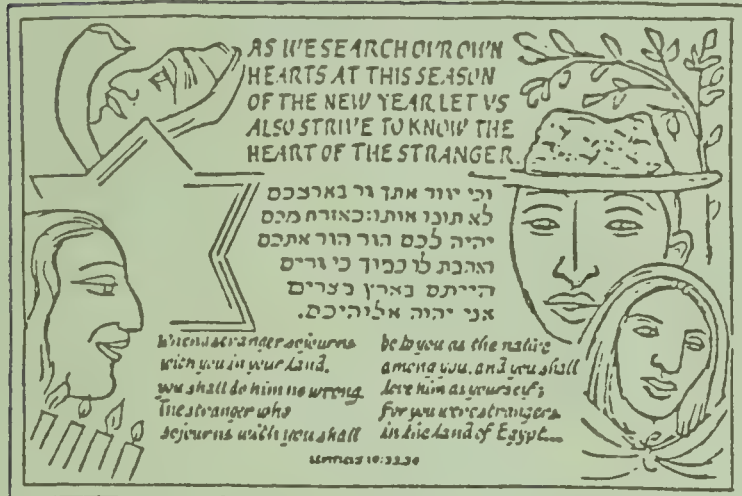 AS WE SEARCH OUR OWN
HEARTS AT THIS SEASON
OF THE NEW YEAR LET US
ALSO STRIVE TO KNOW THE
HEART OF THE STRANGER.
וכי יגור אתך גר בארצכם
לא תונו אותו:כאזרח מכם
יהיה לכם הגר הגר אתכם
ואהבת לו כמוך כי גרים
הייתם בארץ מצרים
אני יהוה אלוהיכם.
When a stranger sojourns
with you in your land,
you shall do him no wrong.
The stranger who
sojourns with you shall
be to you as the native
among you, and you shall
love him as yourself;
for you were strangers
in the land of Egypt...
Leviticus 19:33,34